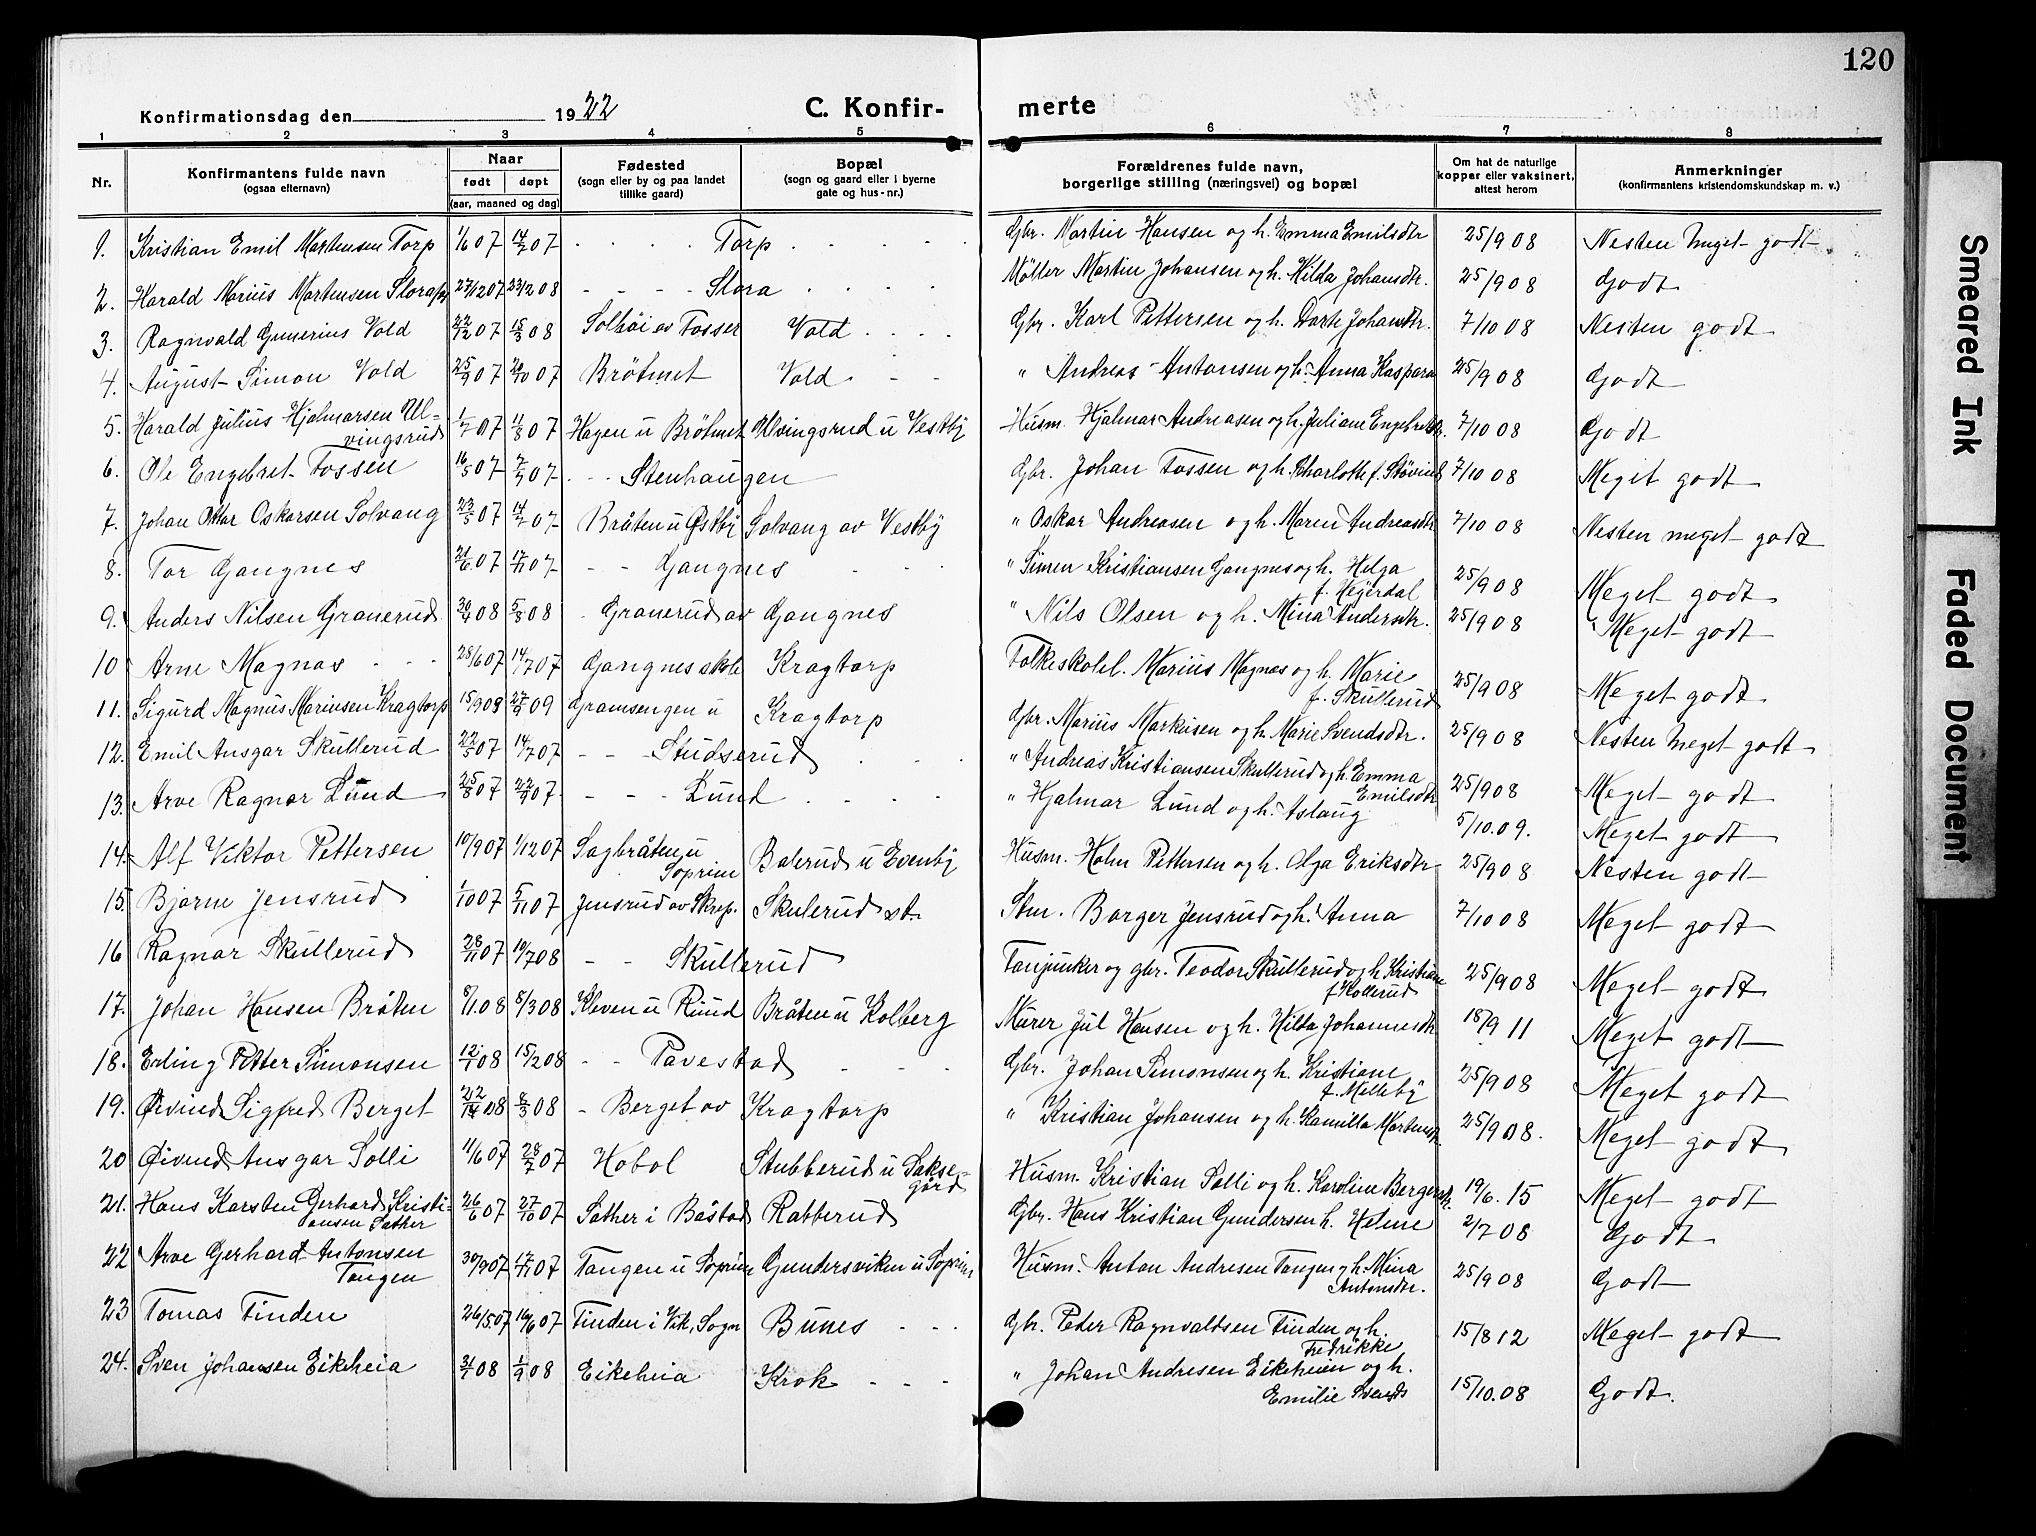 120
Konfirmationsdag den 1922
C. Konfir-merte
1 2 3 4 5 6 7 8
Nr.
Konfirmantens fulde navn
(ogsaa efternavn)
Naar
født døpt
(aar, maaned og dag)
Fødested
(sogn eller by og paa landet
tillike gaard)
Bopæl
(sogn og gaard eller i byerne
gate og hus-nr.)
Forældrenes fulde navn,
borgerlige stilling (næringsvei) og bopæl
Om hat de naturlige
kopper eller vaksinert,
attest herom
Anmerkninger
(konfirmantens kristendomskundskap m. v.)
1. Kristian Emil Martensen Torp 1/6 07 14/7 07 Torp Gbr. Martin Hansen og h. Emma Emilsdtr 25/9 08 Nesten meget godt
2. Harald Marius Martensen Slora 27/12 07 23/2 08 Slora Möller Martin Johansen og h. Hilda Johansdtr. 25/9 08 Godt
3. Ragnvald Gunerius Vold 22/12 07 15/3 08 Solhöi av Fosser Vold Gbr. Karl Pettersen og h. Dorte Johansdtr. 7/10 08 Nesten godt
4. August Simon Vold 25/9 07 20/10 07 Brötmet Vold " Andreas Antonsen og h. Anna Kaspara 25/9 08 Godt
5. Harald Julius Hjalmarsen Ul-
vingsrud 1/7 07 11/8 07 Hagen u Brötmet Ulvingsrud u Vestby Husm. Hjalmar Andreasen og h. Juliane Engebretsdtr. 7/10 08 Godt
6. Ole Engebret Fossen 16/5 07 7/7 07 Stenhaugen Gbr. Johan Fossen og h. Charlotte f. Stövind 7/10 08 Meget godt
7. Johan Ottar Oskarsen Solvang 23/5 07 14/7 07 Bråten u Østby Solvang av Vestby " Oskar Andreasen og h. Maren Andreasdtr 7/10 08 Nesten meget godt
8. Tor Gangnes 21/6 07 17/11 07 Gangnes " Simen Kristiansen Gangnes og h. Helga
f. Hegerdal 25/9 08 Meget godt
9. Anders Nilsen Granerud 08 08 Granerud av Gangnes " Nils Olsen og h. Mina Andersdtr. 25/9 08 Meget godt
10 Arne Magnas 28/6 07 14/7 07 Gangnes skole Kragtorp Folkeskolel. Marius Magnas og h. Marie
f. Skullerud 25/9 08 Meget godt
11. Sigurd Magnus Mariusen Kragtorp 15/9 08 09 Gramsengen u Kragtorp Gbr. Marius Markusen og h. Marie Svendsdtr. 25/9 08 Nesten meget godt
12. Emil Ansgar Skullerud 22/5 07 14/7 07 Studserud " Andreas Kristiansen Skullerud og h. Emma
Emilsdtr 25/9 08 Meget godt
13. Arve Ragnar Lund 25/8 07 22/9 07 Lund " Hjalmar Lund og h. Aslaug 5/10.09. Meget godt
14. Alf Viktor Pettersen 10/9 07 1/12 07 Sagbråten u
Soprim Balerud u Evenby Husm. Holm Pettersen og h. Olga Eriksdtr 25/9 08 Nesten godt
15. Bjarne Jensrud 1/10 07 5/11 07 Jensrud av Skrep. Skulerud st. Stm. Borger Jensrud og h. Anna 7/10 08 Meget godt
16 Ragnar Skullerud 28/11 07 19/7 08 Skullerud Fanjunker og gbr. Teodor Skullerud og h Kristiane
f Kollerud 25/9 08 Meget godt
17. Johan Hansen Bråten 8/1.08 8/3 08 Kleven u Rund Bråten u Kolberg Murer Jul Hansen og h. Hilda Johannesdtr 18/9 11 Meget godt
18. Erling Petter Simonsen 12/1 08 15/2 08 Tavestad Gbr. Johan Simonsen og h. Kristiane
f. Milleby 25/9 08 Meget godt
19. Øivind Sigfred Berget 08 8/3 08 Berget av Kragtorp " Kristian Johansen og h. Kamilla Martinsdtr. 25/9 08. Meget godt
20 Øivind Ansgar Solli 11/6 07 28/7 07 Hobøl Stubberud u Sakse-
gård Husm. Kristian Solli og h. Karoline Bergersdtr. 19/6. 15 Meget godt
21. Hans Karsten Gerhard Kristi-
ansen Sather 26/6 07 27/10 07 Sather i Båstad Ratterud Gbr. Hans Kristian Gundersen h. Helene 2/7 08 Godt
22 Arve Gerhard Antonsen
Tangen 30/9 07 17/11 07 Tangen u Soprim Gundersviken u Soprim Husm. Anton Andresen Tangen og h. Mina
Antonsdtr. 25/9 08 Godt
23 Tomas Finden 26/5.07 16/6 07 Finden i Vik, Sogn Bunes Gbr. Peder Ragnvaldsen Finden og h.
Fredrikke 15/8 12 Meget godt
24. Sven Johansen Eikeheia 31/1 08 08 Eikeheia Krok " Johan Andresen Eikeheien og h.
Emilie Svends 15/10.08 Godt.
Smeared Ink
Faded Document